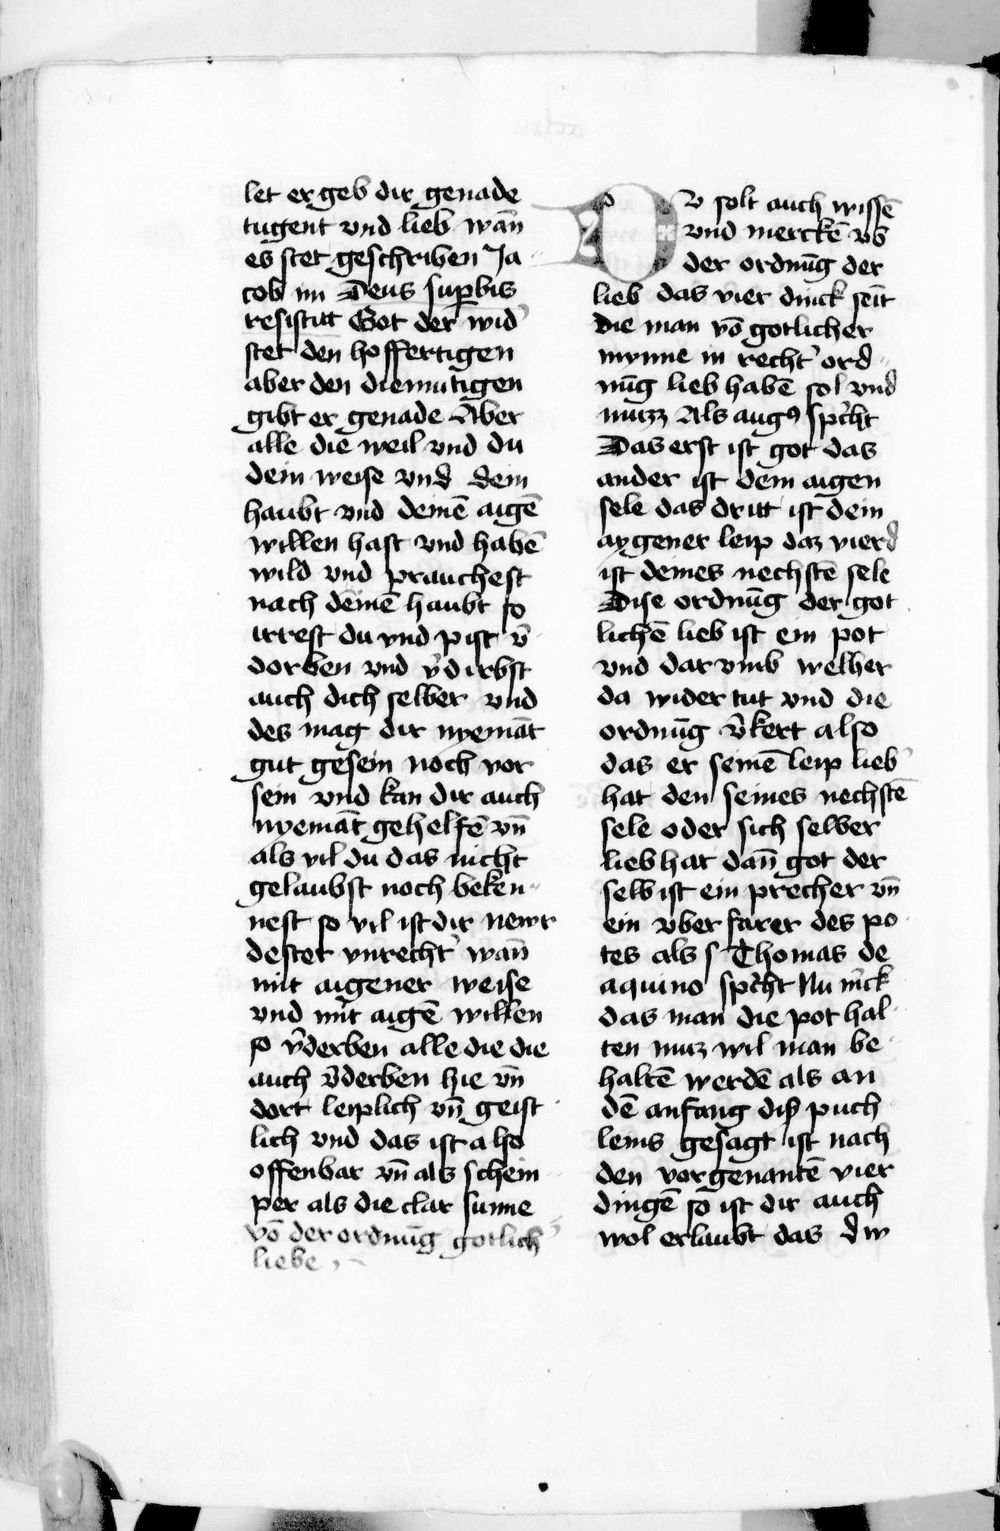 let er geb dir genade
tugent vnd lieb wān
es stet geschriben Ja
cob iiii Deus suꝑbis
resistitt Got der wid᾽
stet den hoffertigen
aber den diemutigen
gibt er genade Aber
alle die weil vnd du
dein weise vnd dein
haubt vnd deinē aigē
willen hast vnd habē
wild vnd prauchest
nach deinē haubt so
irrest du vnd pist v᾽
dorben vnd v᾽dirbst
auch dich selber vnd
des mag dir nyemāt
gut gesein noch vor
sein vnd kan dir auch
nyemāt gehelfē vn̄
als vil du das nicht
gelaubst noch beken
nest so vil ist dir newr
dester vnrecht᾽ wān
mit aigener weise
vnd mit aigē willen
so v᾽derben alle die die
auch v᾽derben hie vn̄
dort leiplich vn̄ geist
lich vnd das ist also
offenbar vn̄ als schein
per als die clar sunne
võ der ordnūg gotlich᾽
liebe
DV solt auch wissē
vnd merckē vō
der ordnūg der
lieb das vier dinck seīt
die man võ gotlicher
mynne in recht᾽ ord
nūg lieb habē sol vnd
muzz Als augꝰ sp᾽cht
Das erst ist got das
ander ist dein aigen
sele das dritt ist dein
aygener leip daz vierd
ist deines nechstē sele
Dise ordnūg der got
lichē lieb ist ein pot
vnd dar vmb welher
da wider tut vnd die
ordnūg v᾽kert also
das er seinē leip lieb᾽
hat den seines nechstē
sele oder sich selber
lieb hat dan̄ got der
selb ist ein precher vn̄
ein vber farer des po
tes als s Thomas de
aquino sp᾽cht Nu m᾽ck
das man die pot hal
ten muz wil man be
haltē werdē als an
dē anfang diß puch
leins gesagt ist nach
den vorgenantē vier
dingē so ist dir auch
wol erlaubt das dw